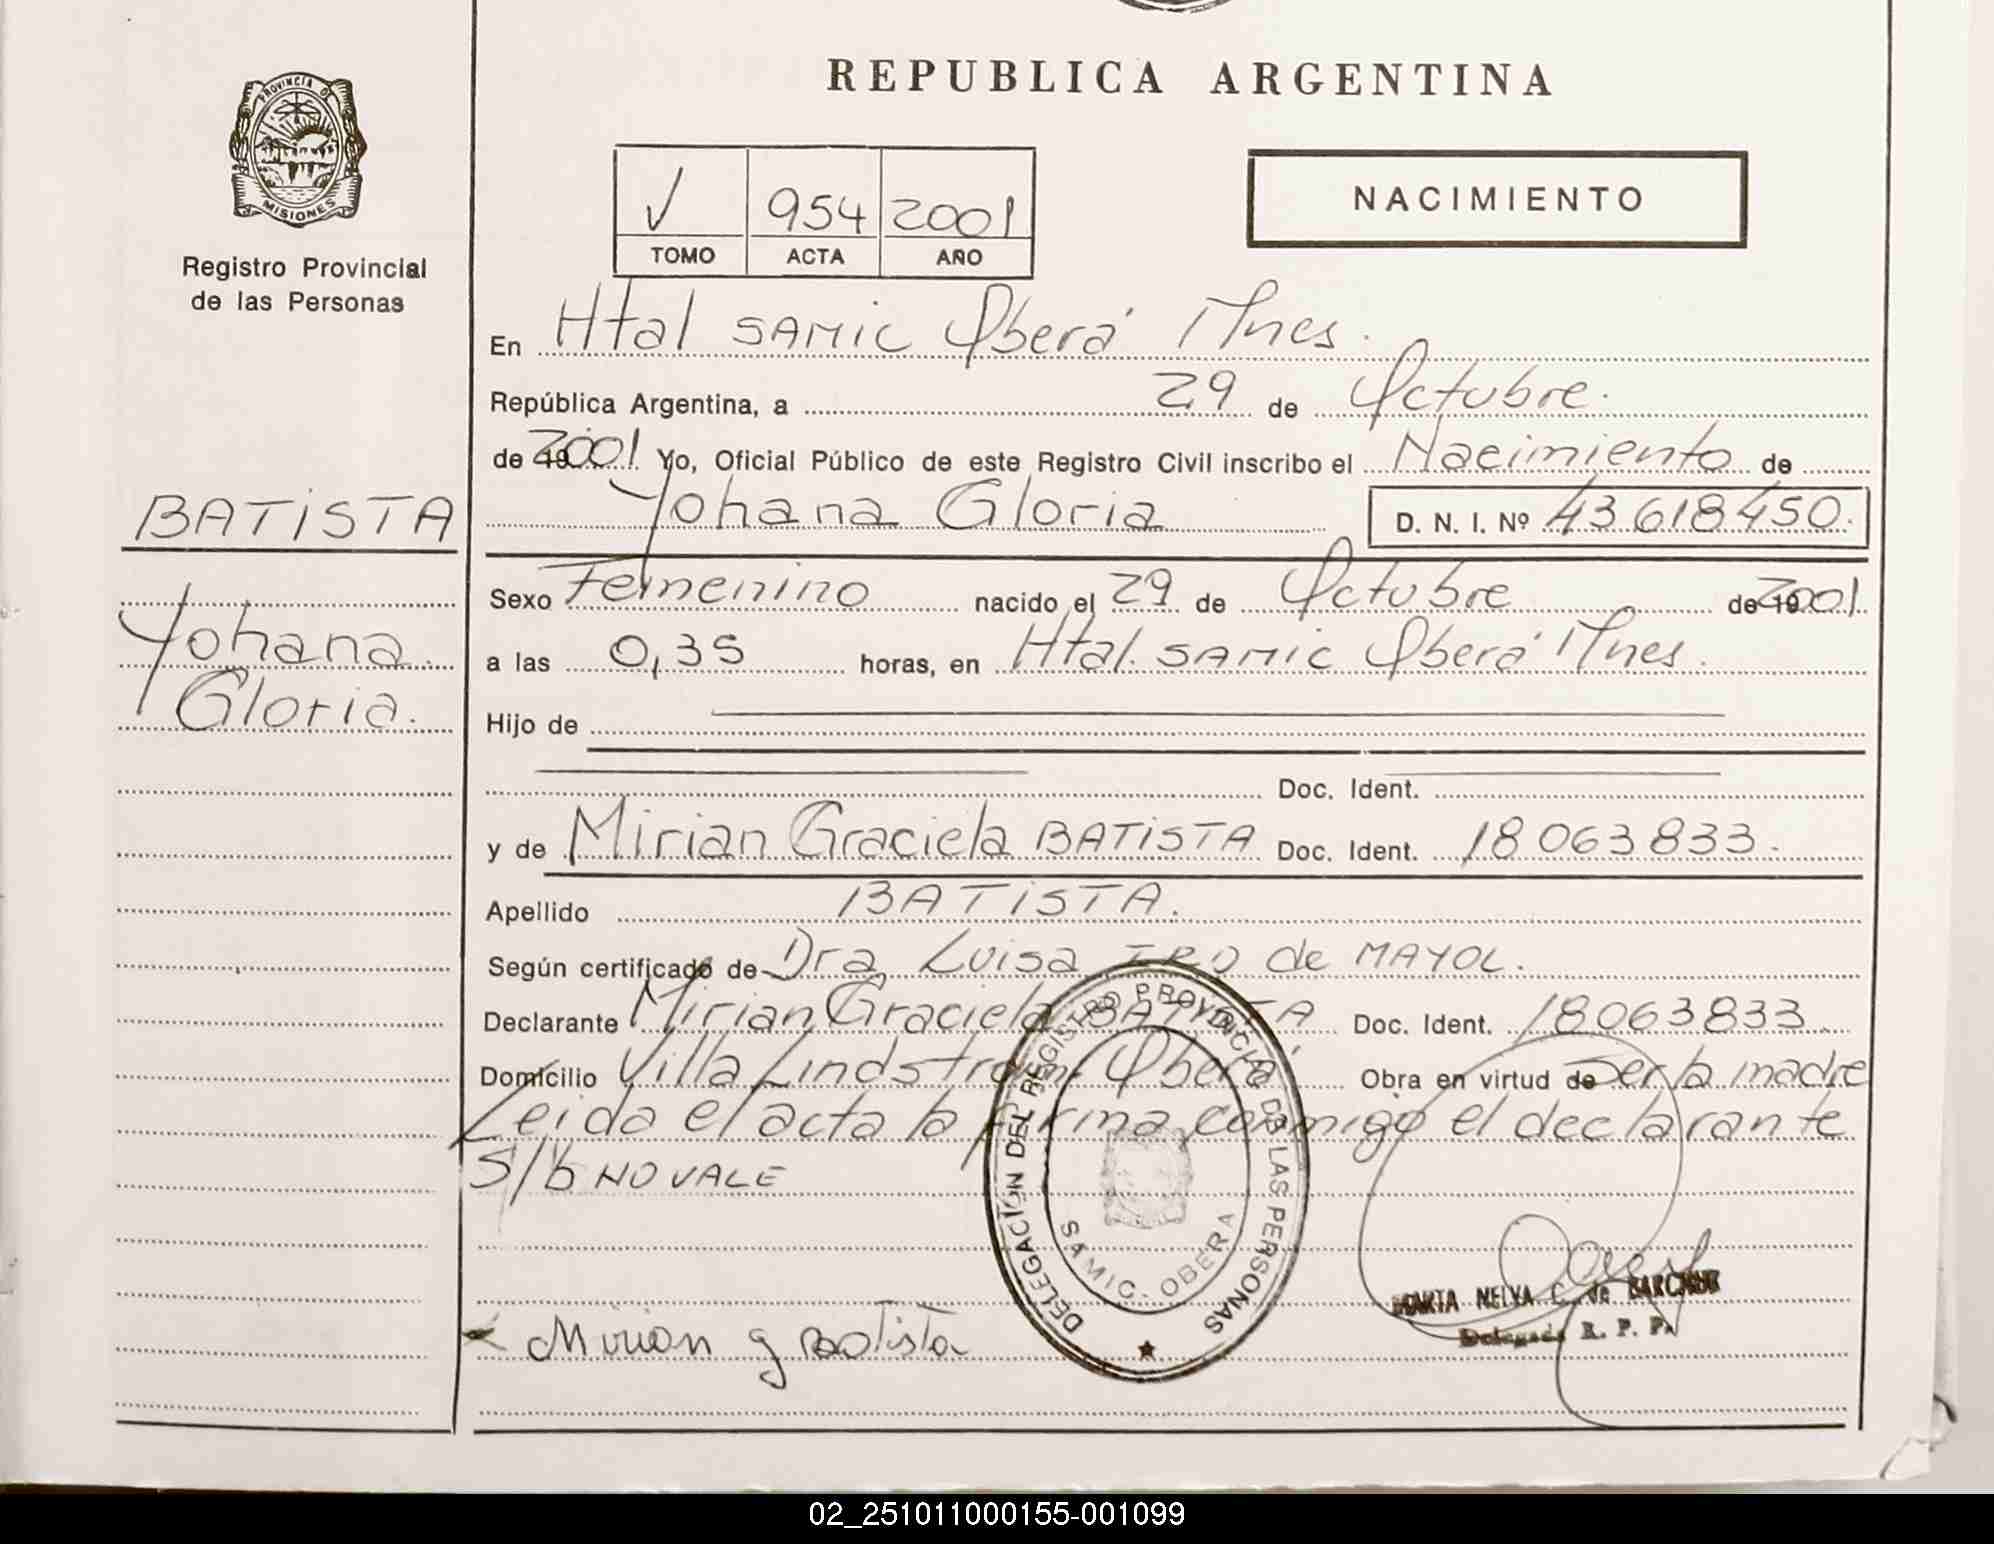 REPUBLICA ARGENTINA
PROVINCIA DE
MISIONES
Registro Provincial
de las Personas
V 954 2001
TOMO ACTA AÑO
NACIMIENTO
En Htal SAMIC Oberá Mnes.
República Argentina, a 29 de Octubre.
de 19 2001 Yo, Oficial Público de este Registro Civil inscribo el Nacimiento de
Yohana Gloria D. N. I. Nº 43 618 450.
BATISTA
Yohana
Gloria.
Sexo Femenino nacido el 29 de Octubre de 19 2001.
a las 0,35 horas, en Htal. SAMIC Oberá Mnes.
Hijo de
Doc. Ident.
y de Mirian Graciela BATISTA Doc. Ident. 18 063 833.
Apellido BATISTA.
Según certificado de Dra. Luisa IRO de MAYOL.
Declarante Mirian Graciela BATISTA Doc. Ident. 18063833
Domicilio Villa Lindstrom Oberá Obra en virtud de ser la madre
Leida el acta la firma conmigo el declarante
S/b NO VALE
DELEGACIÓN DEL REGISTRO PROVINCIAL DE LAS PERSONAS
SAMIC. OBERA
MARTA NELVA C. de
Delegada R. P. P.
Mirian g Batista
02_251011000155-001099